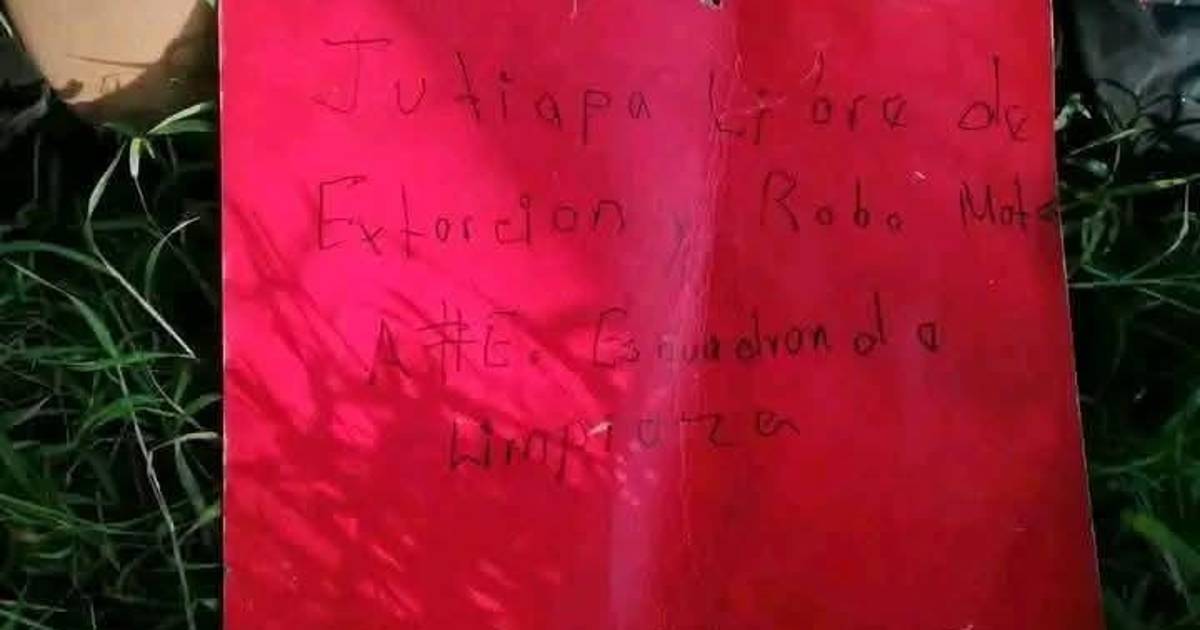 Jutiapa Libre de
Extorcion y Robo Mot
A#E. Escuadron de
Limpieza